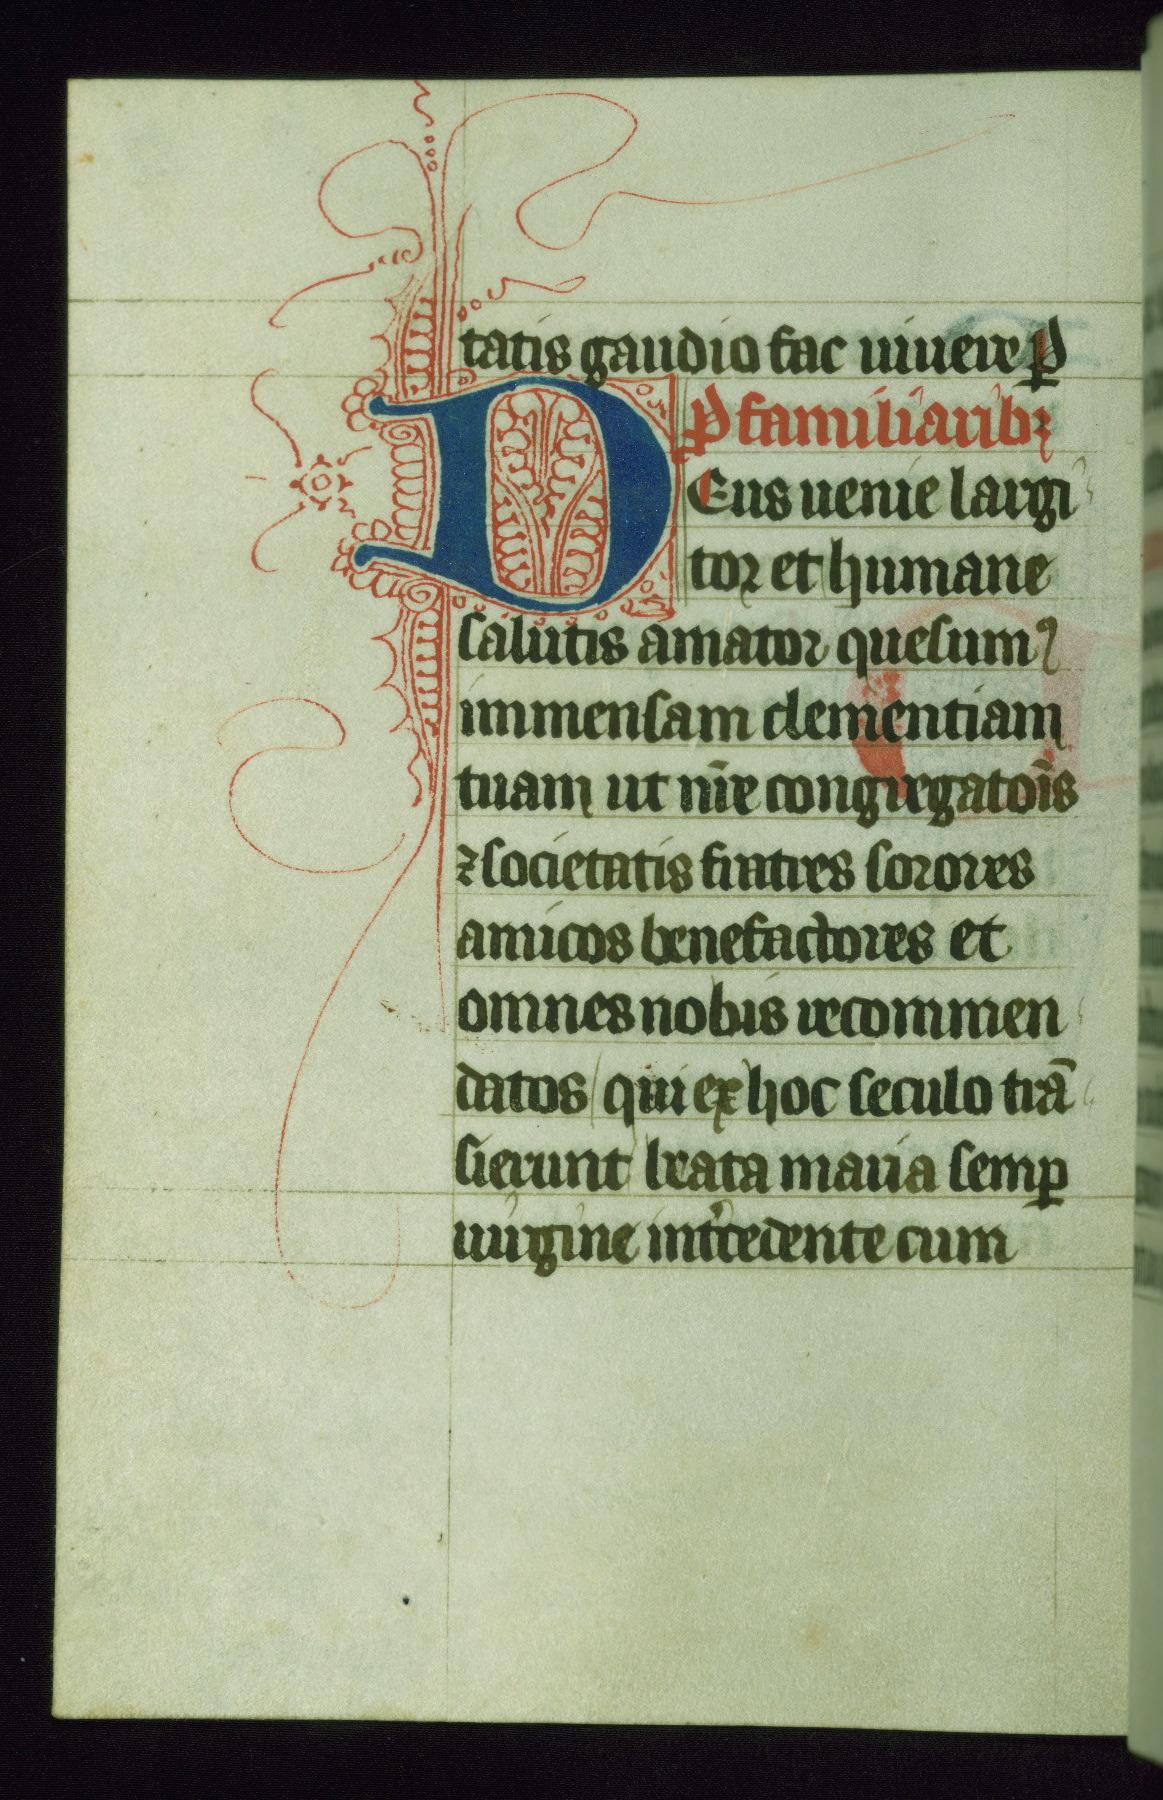 tatis gaudio fac uiuere ꝑ
ꝓ familiaribꝫ
DEus uenie largi
tor et humane
salutis amator quesumꝰ
immensam clementiam
tuam ut nr̄e congregatōis
⁊ societatis fratres sorores
amicos benefactores et
omnes nobis recommen
datos qui ex hoc seculo trā
sierunt beata maria semꝑ
uirgine int̾cedente cum